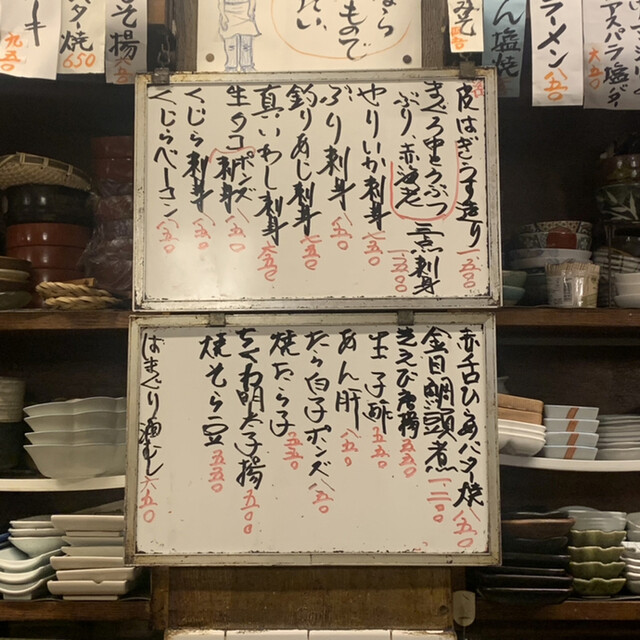 皮はぎうす造り 一.五〇〇
まぐろ中とろぶつ
ぶり、赤海老 三点刺身 一.五〇〇
やりいか刺身 七五〇
ぶり刺身 八五〇
釣りあじ刺身 七五〇
真いわし刺身 七五〇
生タコ 刺身 ポンズ 八五〇
くじら刺身 八五〇
くじらベーコン 八五〇
赤舌ひらめバター焼 八五〇
金目鯛頭煮 一.二〇〇
き子酢 五五〇
あん肝 八五〇
たら白子ポンズ 八五〇
焼たら子 五五〇
ちくわ明太子揚 五五〇
焼そら豆 五五〇
はまぐり酒むし 六五〇
もので
たい
そ揚
タ焼
650
キ
九五〇
ん塩焼
ラーメン
八五〇
アスパラ塩バタ